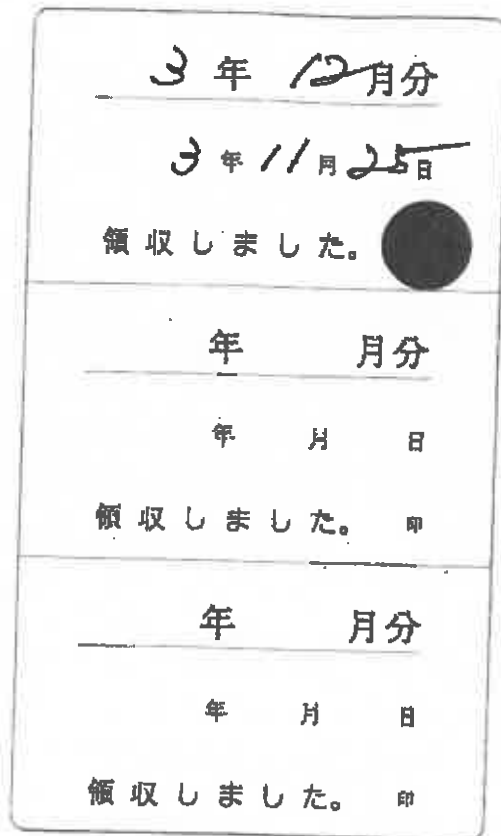 3年12月分
3年11月25日
領収しました。
年 月分
年 月 日
領収しました。 印
年 月分
年 月 日
領収しました。 印